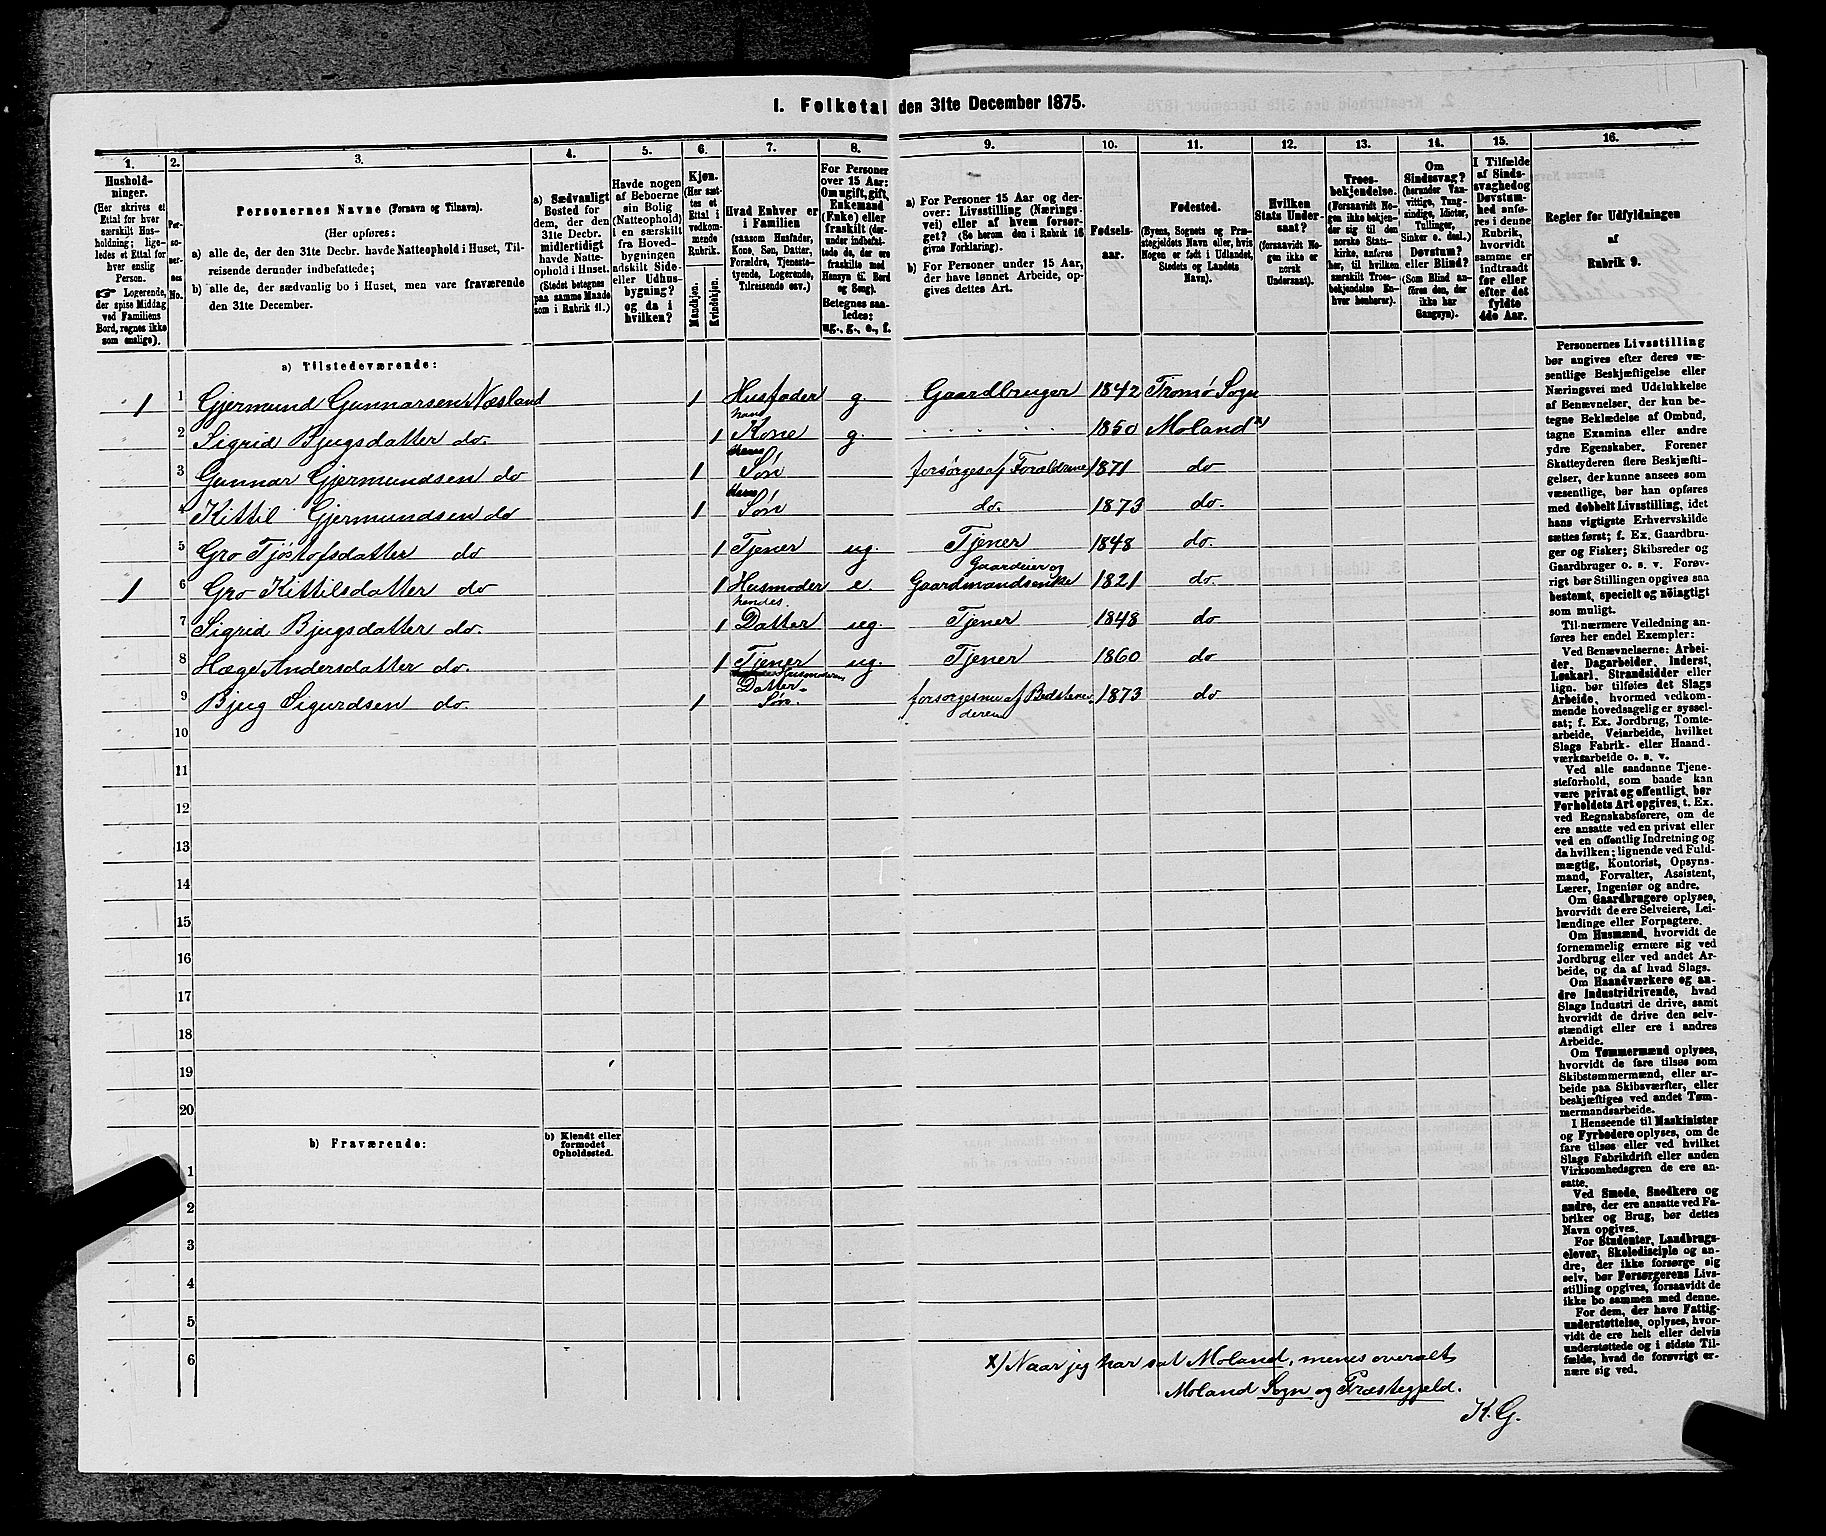 I. Folketal den 31te December 1875.
1. 2. 3. 4. 5. 6. 7. 8. 9. 10. 11. 12. 13. 14. 15. 16.
Hushold-
ninger.
(Her skrives et
Ettal for hver
særskilt Hus-
holdning; lige-
ledes et Ettal for
hver enslig
Person.
☞ Logerende,
der spise Middag
ved Familiens
Bord, regnes ikke
som enslige).
Per-
so-
ner-
nes
No.
Personernes Navne (Fornavn og Tilnavn).
(Her opføres:
a) alle de, der den 31te Decbr. havde Natteophold i Huset, Til-
reisende derunder indbefattede;
b) alle de, der sædvanlig bo i Huset, men vare fraværende
den 31te December.
a) Sædvanligt
Bosted for
dem, der den
31te Decbr.
midlertidigt
havde Natte-
ophold i Huset.
(Stedet betegnes
paa samme Maade
som i Rubrik 11.)
Havde nogen
af Beboerne
sin Bolig
(Natteophold)
i en særskilt
fra Hoved-
bygningen
adskilt Side-
eller Udhus-
bygning?
og da i
hvilken?
Kjøn.
(Her sæt-
tes et
Ettal i
vedkom-
mende
Rubrik.
Mandkjøn.
Kvindekjøn.
Hvad Enhver er
i Familien
(saasom Husfader,
Kone, Søn, Datter,
Forældre, Tjeneste-
tyende, Logerende,
Tilreisende osv.)
For Personer
over 15 Aar:
Om ugift, gift,
Enkemand
(Enke) eller
fraskilt (der-
under indbefat-
tede de, der ere
fraskilte med
Hensyn til Bord
og Seng).
Betegnes saa-
ledes:
ug., g., e., f.
a) For Personer 15 Aar og der-
over: Livsstilling (Nærings-
vei) eller af hvem forsør-
get? (Se herom den i Rubrik 16
givne Forklaring).
b) For Personer under 15 Aar,
der have lønnet Arbeide, op-
gives dettes Art.
Fødsels-
aar.
Fødested.
(Byens, Sognets og Præ-
stegjeldets Navn eller, hvis
Nogen er født i Udlandet,
Stedets og Landets
Navn).
Hvilken
Stats Under-
saat?
(forsaavidt No-
gen ikke er
norsk
Undersaat).
Troes-
bekjendelse.
(Forsaavidt No-
gen ikke bekjen-
der sig til den
norske Stats-
kirke, anføres
her, til hvilken
særskilt Troes-
bekjendelse En-
hver henhører).
Om
Sindssvag?
(herunder Van-
vittige, Tung-
sindige, Idioter,
Tullinger,
Sinker o. desl.)
Døvstum?
eller Blind?
(Som Blind an-
føres den, der
ikke har
Gangsyn).
I Tilfælde
af Sinds-
svaghed og
Døvstum-
hed anfø-
res i denne
Rubrik,
hvorvidt
samme er
indtraadt
før eller
efter det
fyldte
4de Aar.
Regler for Udfyldningen
af
Rubrik 9.
a) Tilstedeværende:
1 1 Gjermund Gunnarsen Næsland 1 Husfader g. Gaardbruger 1842 Tromø Sogn
2 Sigrid Bjugsdatter do. 1 hans Kone g. 1850 Moland x)
3 Gunnar Gjermundsen do 1 Deres Søn forsørges af Forældrene 1871 do
4 Kittil Gjermundsen do 1 Deres Søn do. 1873 do.
5 Gro Tjøstofsdatter do 1 Tjener ug. Tjener 1848 do.
1 6 Gro Kittilsdatter do 1 Husmoder e. Gaardeier og Gaardmandsenke 1821 do.
7 Sigrid Bjugsdatter do. 1 hendes Datter ug. Tjener 1848 do
8 Hæge Andersdatter do. 1 Tjener ug. Tjener 1860 do
9 Bjug Sigurdsen do. 1 Husmoderens Datter- Søn. forsørges af Bedstemoderen 1873 do
10
11
12
13
14
15
16
17
18
19
20
b) Fraværende:
b) Kjendt eller
formodet
Opholdssted.
1
2
3
4
5
6
x) Naar jeg har sat Moland, menes overalt
Moland Sogn og Præstegjeld.
K. G.
Personernes Livsstilling
bør angives efter deres væ-
sentlige Beskjæftigelse eller
Næringsvei med Udelukkelse
af Benævnelser, der kun be-
tegne Beklædelse af Ombud,
tagne Examina eller andre
ydre Egenskaber. Forener
Skatteyderen flere Beskjæfti-
gelser, der kunne ansees som
væsentlige, bør han opføres
med dobbelt Livsstilling, idet
hans vigtigste Erhvervskilde
sættes først; f. Ex. Gaardbru-
ger og Fisker; Skibsreder og
Gaardbruger o. s. v. Forøv-
rigt bør Stillingen opgives saa
bestemt, specielt og nöiagtigt
som muligt.
Til nærmere Veiledning an-
føres her endel Exempler:
Ved Benævnelserne: Arbei-
der, Dagarbeider, Inderst,
Løskarl, Strandsidder eller
lign. bør tilføies det Slags
Arbeide, hvormed vedkom-
mende hovedsagelig er syssel-
sat; f. Ex. Jordbrug, Tomte-
arbeide, Veiarbeide, hvilket
Slags Fabrik- eller Haand-
værksarbeide o. s. v.
Ved alle saadanne Tjene-
steforhold, som baade kan
være privat og offentligt, bør
Forholdets Art opgives, t. Ex.
ved Regnskabsførere, om de
ere ansatte ved en privat eller
ved en offentlig Indretning og
da hvilken; lignende ved Fuld-
mægtig, Kontorist, Opsyns-
mand, Forvalter, Assistent,
Lærer, Ingeniør og andre.
Om Gaardbrugere oplyses,
hvorvidt de ere Selveiere, Lei-
lændinge eller Forpagtere.
Om Husmænd, hvorvidt de
fornemmelig ernære sig ved
Jordbrug eller ved andet Ar-
beide, og da af hvad Slags.
Om Haandværkere og an-
dre industridrivende, hvad
Slags Industri de drive, samt
hvorvidt de drive den selv-
stændigt eller ere i andres
Arbeide.
Om Tømmermænd oplyses,
hvorvidt de fare tilsøs som
Skibstømmermænd, eller ar-
beide paa Skibsværfter, eller
beskjæftiges ved andet Tøm-
mermandsarbeide.
I Henseende til Maskinister
og Fyrbødere oplyses, om de
fare tilsøs eller ved hvilket
Slags Fabrikdrift eller anden
Virksomhedsgren de ere an-
satte.
Ved Smede, Snedkere og
andre, der ere ansatte ved Fa-
briker og Brug, bør dettes
Navn opgives.
For Studenter, Landbrugs-
elever, Skoledisciple og an-
dre, der ikke forsørge sig
selv, bør Forsørgerens Livs-
stilling opgives, forsaavidt de
ikke bo sammen med denne.
For dem, der have Fattig-
understøttelse, oplyses, hvor-
vidt de ere helt eller delvis
understøttede og i sidste Til-
fælde, hvad de forøvrigt er-
nære sig ved.